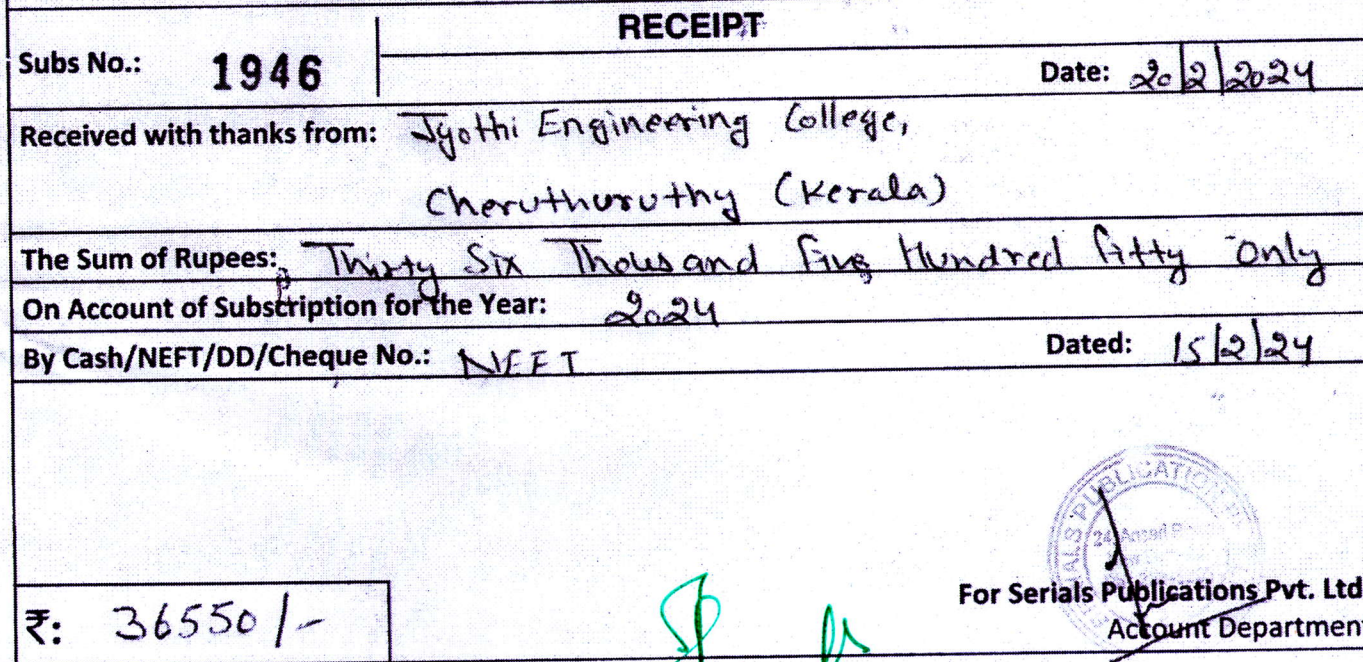 RECEIPT
Subs No.: 1946
Date: 20/2/2024
Received with thanks from: Jyothi Engineering College,
Cheruthuruthy (Kerala)
The Sum of Rupees: Thirty Six Thousand Five Hundred Fifty Only
On Account of Subscription for the Year: 2024
By Cash/NEFT/DD/Cheque No.: NEFT Dated: 15/2/24
PUBLICATION
24, Ansari
For Serials Publications Pvt. Ltd
Account Department
₹: 36550/-